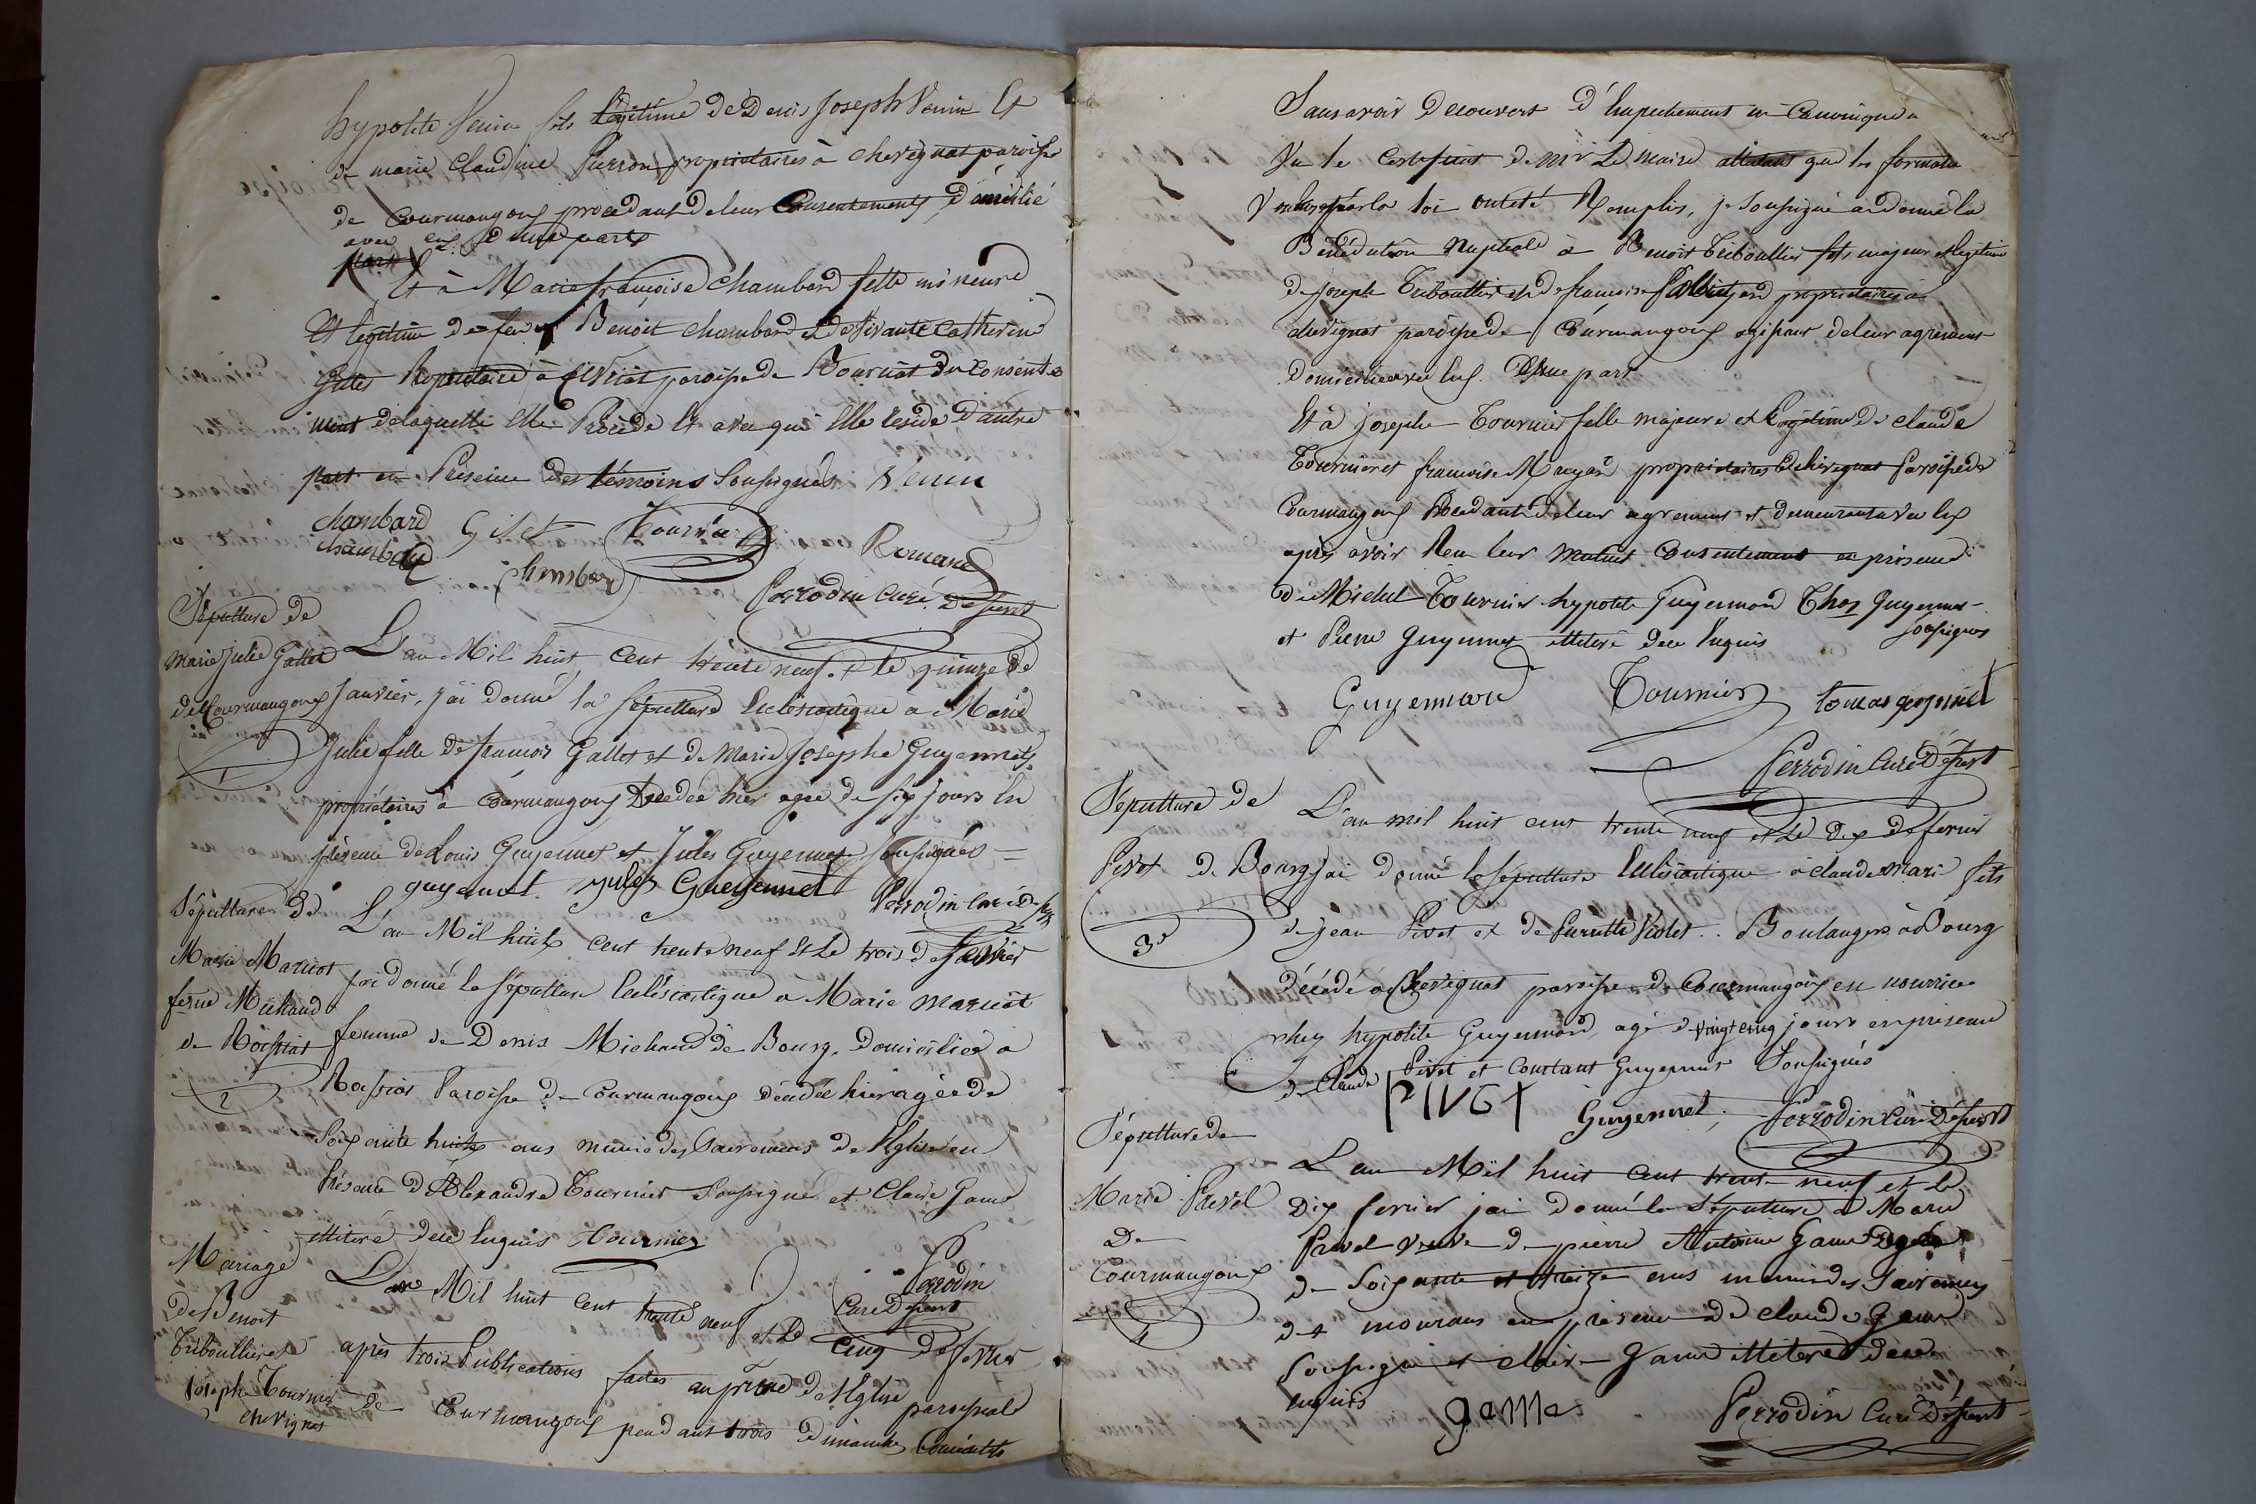 hypolite Venin fils légitime de Denis Joseph Venin Et
de marie Claudine Perron propriétaires à chevignat paroisse
de Courmangoux procedant de leur Consentement, domicilié
avec eux d'une part
part
Et à Marie françoise Chambard fille mineure
Et légitime de feu Benoit chambard et de vivante Catherine
Gilet Propriétaire à Civriat paroisse de Bournat du consente
ment delaquelle Elle Procède Et avec qui Elle réside d'autre
part en Présence des témoins Soussignés Venin
chambard Gilet Tournier Romand
chambard chambard Perrodin Curé Desservt
Sépulture de
Marie Julie Gallet
de Courmangoux
1
L'an Mil huit Cent trente neuf et le quinze de
Janvier, j'ai donné la sépulture Ecclésiastique a Marie
Julie fille de françois Gallet et de Marie Josephe Guyennet
propriétaires à Courmangoux Décédée hier agée de six jours En
présence de Louis Guyennet et Jules Guyennet soussignés
guyennet jules Gueyennet Perrodin Curé Desst
Sépulture de
Marie Maricot
feme Michaud
de Roissiat
2
L'an Mil huit cent trente neuf Et Le trois de fevrier
j'ai donné la Sépulture Ecclésiastique a Marie Maricot
femme de Denis Michaud de Bourg, domiciliée a
Rossiat Paroisse de Courmangoux décédée hier agée de
Soixante huit ans munie des Sacremens de l'Eglise en
Présence d'Alexandre Tournier Soussigné et Claire Game
illiteré de ce Enquis Tournier
Perrodin
Curé Desservt
Mariage
De Benoit
Triboullier et
Josephe Tournier
chevignat
L'an Mil huit cent trente neuf et Le Cinq de fevrier
après trois Publications faites au prône de l'Eglise paroissiale
de Courmangoux pendant trois dimanches Consécutifs
Sans avoir decouvert d'Empechement ni Canonique
Vu le Certificat de Mr Le maire attestant que les formalités
Voulues par la loi ont été Remplis, je soussigné ai donné la
Bénédiction Nuptiale à Benoit Triboullier fils majeur et légitime
de Joseph Triboullier et de françoise propriétaires à
chevignat paroisse de Courmangoux agissant de leur agrement
Domicilié avec Eux D'une part
Et a josephe Tournier fille majeure et Légitime de claude
Tournier et francoise Mayard propriétaires à chevignat Paroisse de
Courmangoux Procedant de leur agrement et demeurant avec Eux
après avoir Reçu leur mutuel Consentement en présence
de Michel Tournier hypolite Guyennard Thos Guyennet
et Pierre Guyennet illiteré de ce Enquis soussignés
Guyennard Tournier tomas geoyennet
Perrodin Curé Desservt
Sépulture de
Pivet de Bourg
3e
L'an mil huit cent trente neuf et Le Dix De fevrier
j'ai donné la sépulture Ecclésiastique à claude Marie fils
de jean Pivet et de Pierrette Violet Boulangers à Bourg
décédé a Chevignat paroisse de Courmangoux en nourrice
chez hypolite Guyennard, agé de vingt cinq jours en présence
de Claude Pivet et Constant Guyennet Soussignés
PIVET Guyennet, Perrodin Curé Desservt
Sépulture de
Marie Pavel
De
Courmangoux
4
L'an Mil huit Cent trente neuf et le
Dix fevrier j'ai donné la sépulture a Marie
Pavel veuve de pierre Antoine Game agée
de Soixante et treize ans munie des Sacremens
des mourans en présence de claude Game
Soussigné et Claire Game illiterée de ce
enquis
game Perrodin Curé Desservt